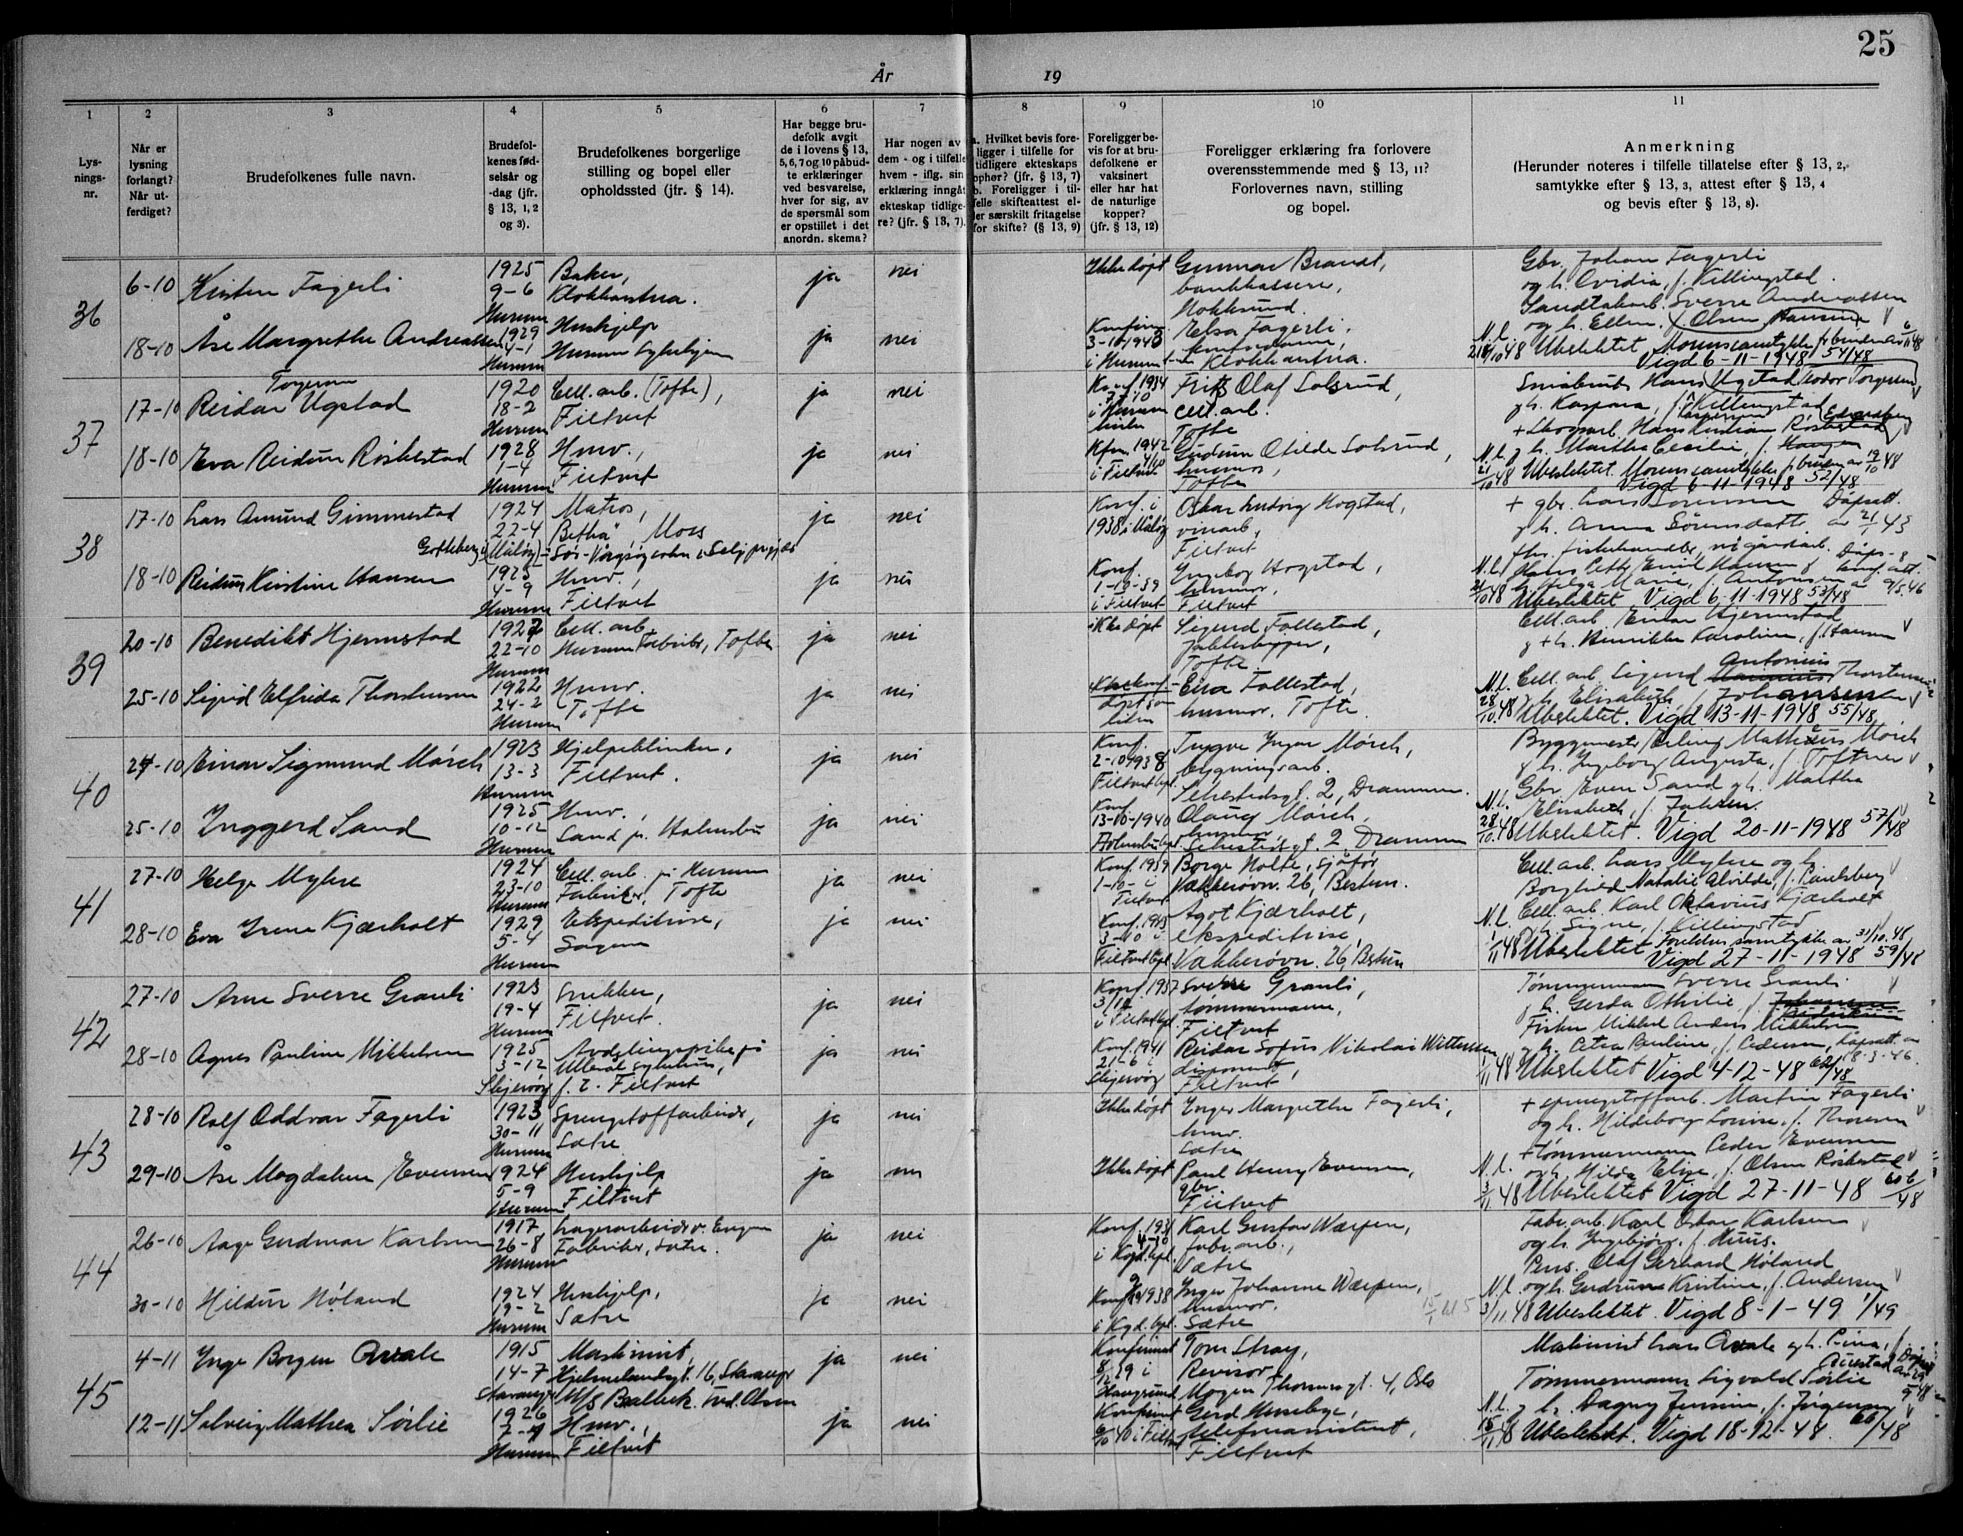 25
År 19
1 2 3 4 5 6 7 8 9 10 11
Lysningsnr.
Når er lysning forlangt? Når utferdiget?
Brudefolkenes fulle navn.
Brudefolkenes fødselsår og -dag (jfr. § 13, 1, 2 og 3).
Brudefolkenes borgerlige stilling og bopel eller opholdssted (jfr. § 14).
Har begge brudefolk avgit de i lovens § 13, 5, 6, 7 og 10 påbudte erklæringer ved besvarelse, hver for sig, av de spørsmål som er opstillet i det anordn. skema?
Har nogen av dem - og i tilfelle hvem - iflg. sin erklæring inngåt ekteskap tidligere? (jfr. § 13, 7).
a. Hvilket bevis foreligger i tilfelle for tidligere ekteskaps ophør? (jfr. § 13, 7) b. Foreligger i tilfelle skifteattest eller særskilt fritagelse for skifte? (§ 13, 9)
Foreligger bevis for at brudefolkene er vaksinert eller har hat de naturlige kopper? (jfr. § 13, 12)
Foreligger erklæring fra forlovere overensstemmende med § 13, 11? Forlovernes navn, stilling og bopel.
Anmerkning (Herunder noteres i tilfelle tillatelse efter § 13, 2, samtykke efter § 13, 3, attest efter § 13, 4 og bevis efter § 13, 8).
36
6-10 Kristen Fagerli 1925 9-6 Hurum Baker, Klokkarstua. ja nei Ikke døpt Gunnar Brandt, bankkasserer, Hokksund. Gbr. Johan Fagerli og h. Ovidia, f. Killingstad.
18-10 Åse Margrethe Andreassen 1929 4-1 Hurum Hushjelp Hurum Sykehjem ja nei Konfirm. 3-10-1943 i Hurum Elsa Fagerli, Klokkarstua. Sandtakarb. Sverre Andreassen og h. Ellen, f. Olsen Hansen
N.l. Ubeslektet Vigd 6-11-1948 54/48
37
17-10 Reidar Torgersen Ugstad 1920 18-2 Hurum Cell. arb. (Tofte), Filtvet ja nei Konf. 1934 i Hurum kirken Fritz Olaf Solsrud, cell. arb. Tofte
18-10 Eva Reidun Röskestad 1928 1-4 Hurum Hmv., Filtvet ja nei Kfm. 1942 i Filtvet Gudrun Otilde Solsrud, husmor, Tofte
N.l. Ubeslektet. Vigd 6-11-1948 52/48
38
17-10 Lars Amund Gimmestad 1924 22-4 Matros, Betha, Moss ja nei Konf. i 1938 i Måløy Oskar Ludvig Hogstad, Filtvet
18-10 Reidun Kristine Hansen 1925 4-9 Hurum Hmv., Filtvet ja nei Konf. 1-10-39 i Filtvet Ingeborg Hogstad, husmor, Filtvet
N.l. Ubeslektet Vigd 6-11-1948 53/48
39
20-10 Benedikt Hjermstad 1927 22-10 Hurum Cell. arb. Hurum Fabriker, Tofte ja nei ikke døpt Sigurd Follestad, Tofte Cell. arb. Einar Hjermstad og h. Henrikke Karoline, f. Hansen
25-10 Sigrid Elfrida Thorstensen 1922 24-2 Hurum Hmv. Tofte ja nei Eva Follestad, husmor. Tofte. Cell. arb. Sigurd Antonius Thorstensen og h. Elisabeth, f. Johansen
N.l. 28/10.48 Ubeslektet. Vigd 13-11-1948 55/48
40
24-10 Einar Sigmund Mörch 1923 13-3 Hurum Hjelpeblinker, Filtvet. ja nei Konf. 2-10-1938 Filtvet kpl. Yngve Ingar Mörch, bygningsarb. Sehestedsgt. 2, Drammen. Byggmester Erling Mathæus Mörch og h. Ingeborg Augusta, f. Toftner
25-10 Inggerd Sand 1925 10-12 Hurum Hmv., Sand pr. Holmsbu ja nei Konf. 13-10-1940 Holmsbu kpl. Olaug Mörch, husmor, Sehestedsgt. 2 Drammen Gbr. Even Sand og h. Martha Elisabeth, f. Jahren.
N.l. 28/10.48 Ubeslektet. Vigd 20-11-1948 57/48
41
27-10 Helge Myhre 1924 23-10 Hurum Cell. arb. på Hurum Fabriker, Tofte ja nei Konf. 1939 1-10- i Filtvet Borge Holte, sjåfør Vækkerövn. 26, Bestum. Cell. arb. Lars Myhre og h. Borghild Natalie Alvilde, f. Paulsberg
28-10 Eva Irene Kjærholt 1929 5-4 Hurum Ekspeditrise, Sagene ja nei Konf. 1943 3-10 i Filtvet kpl. Agot Kjærholt, ekspeditrise, Vækkerövn. 26, Bestum Cell. arb. Karl Oktavius Kjærholt og h. Signe, f. Killingstad
N.l. 1/11 48 Ubeslektet Foreldres samtykke av 31/10.48 Vigd 27-11-1948 59/48
42
27-10 Arne Sverre Granli 1923 19-4 Hurum Snekker, Filtvet. ja nei Konf. 1937 3/10 i Filtvet kpl. Sverre Granli, tømmermann, Filtvet Tømmermann Sverre Granli og h. Gerda Othilie, f.
28-10 Agnes Pauline Mikkelsen 1925 3-12 Skjervøy Avdelingspike på Ullevål sykehus, f. t. Filtvet ja nei Konf. 1941 21-6 i Skjervøy Reidar Sofus Nikolai Wittersen, disponent, Filtvet Fisker Mikkel Anders Mikkelsen og h. Petra Pauline, f. Pedersen,
Ubeslektet Vigd 4-12-48 62/48
43
28-10 Rolf Oddvar Fagerli 1923 30-11 Hurum Sprengstoffarbeider, Sætre ja nei Ikke døpt Inger Margrethe Fagerli, hmv. Sætre + sprengstoffarb. Martin Fagerli og h. Hildeborg Louise, f. Thoresen
29-10 Åse Magdalene Evensen 1924 5-9 Hurum Hushjelp Filtvet ja nei Ikke døpt Paul Henry Evensen, gbr. Filtvet + tømmermann Peder Evensen og h. Hilda Elise, f. Olsen Röskestad
N.l. 3/11 48 Ubeslektet Vigd 27-11-48 60/48
44
26-10 Aage Gudmar Karlsen 1917 26-8 Hurum Lagerarbeider v. Engene Fabriker, Sætre. ja nei Konf. 1931 4-10 i Kgd. kpl. Karl Gustav Wærpen, fabr. arb., Sætre Fabr. arb. Karl Oskar Karlsen og h. Ingebjørg, f. Huus.
30-10 Hildur Høland 1924 19-2 Hurum Hushjelp, Sætre ja nei Konf. 1938 i Kgd. kpl. Inger Johanne Wærpen, husmor, Sætre Pens. Olaf Gerhard Høland og h. Gudrun Kristine, f. Andersen
N.l. 3/11 48 Ubeslektet. Vigd 8-1-49 1/49
45
4-11 Inge Borgen Qvale 1915 14-7 Stavanger Maskinist, Hjelmelandsgt. 16, Stavanger M/S Baalbeck. Fred. Olsen ja nei Konfirmert i Haugesund Tom Stray, Revisor, Mogens Thorsensgt. 4, Oslo Maskinist Lars Qvale og h. Lina, f. Auestad
12-11 Solveig Mathea Sørlie 1926 7-4 Hurum Hmv., Filtvet ja nei Konfirmert 6/10 40 i Filtvet Gerd Huseby, telefonassistent, Filtvet Tømmermann Sigvald Sørlie og h. Dagny Jensine, f. Jørgensen
N.l. 15/11 48 Ubeslektet. Vigd 18-12-48. 66/48